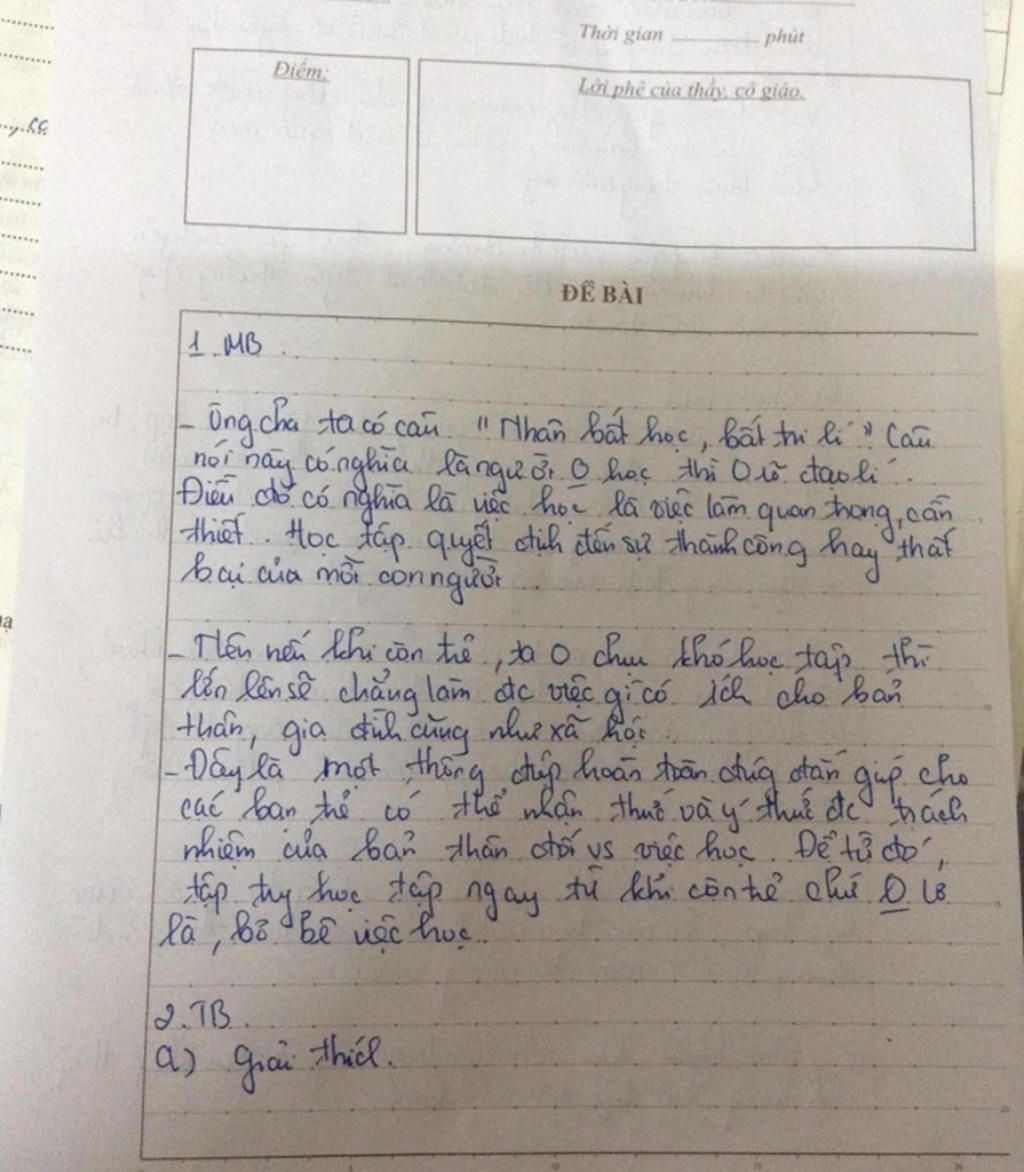 Thời gian ________ phút
Điểm:
Lời phê của thầy, cô giáo.
ĐỀ BÀI
1. MB.
- Ông cha ta có câu "Nhân bất học, bất tri lí". Câu
nói này có nghĩa là người 0 học thì 0 rõ đạo lí.
Điều đó có nghĩa là việc học là việc làm quan trọng, cần
thiết. Học tập quyết định đến sự thành công hay thất
bại của mỗi con người.
- Nên nếu khi còn trẻ, ta 0 chịu khó học tập thì
lớn lên sẽ chẳng làm đc việc gì có ích cho bản
thân, gia đình cũng như xã hội.
- Đây là một thông điệp hoàn toàn đúg đắn giúp cho
các bạn trẻ có thể nhận thức và ý thức đc trách
nhiệm của bản thân đối vs việc học. Để từ đó,
tập học tập ngay từ khi còn trẻ chứ 0 lơ
là, bỏ bê việc học.
2. TB.
a) Giải thích.